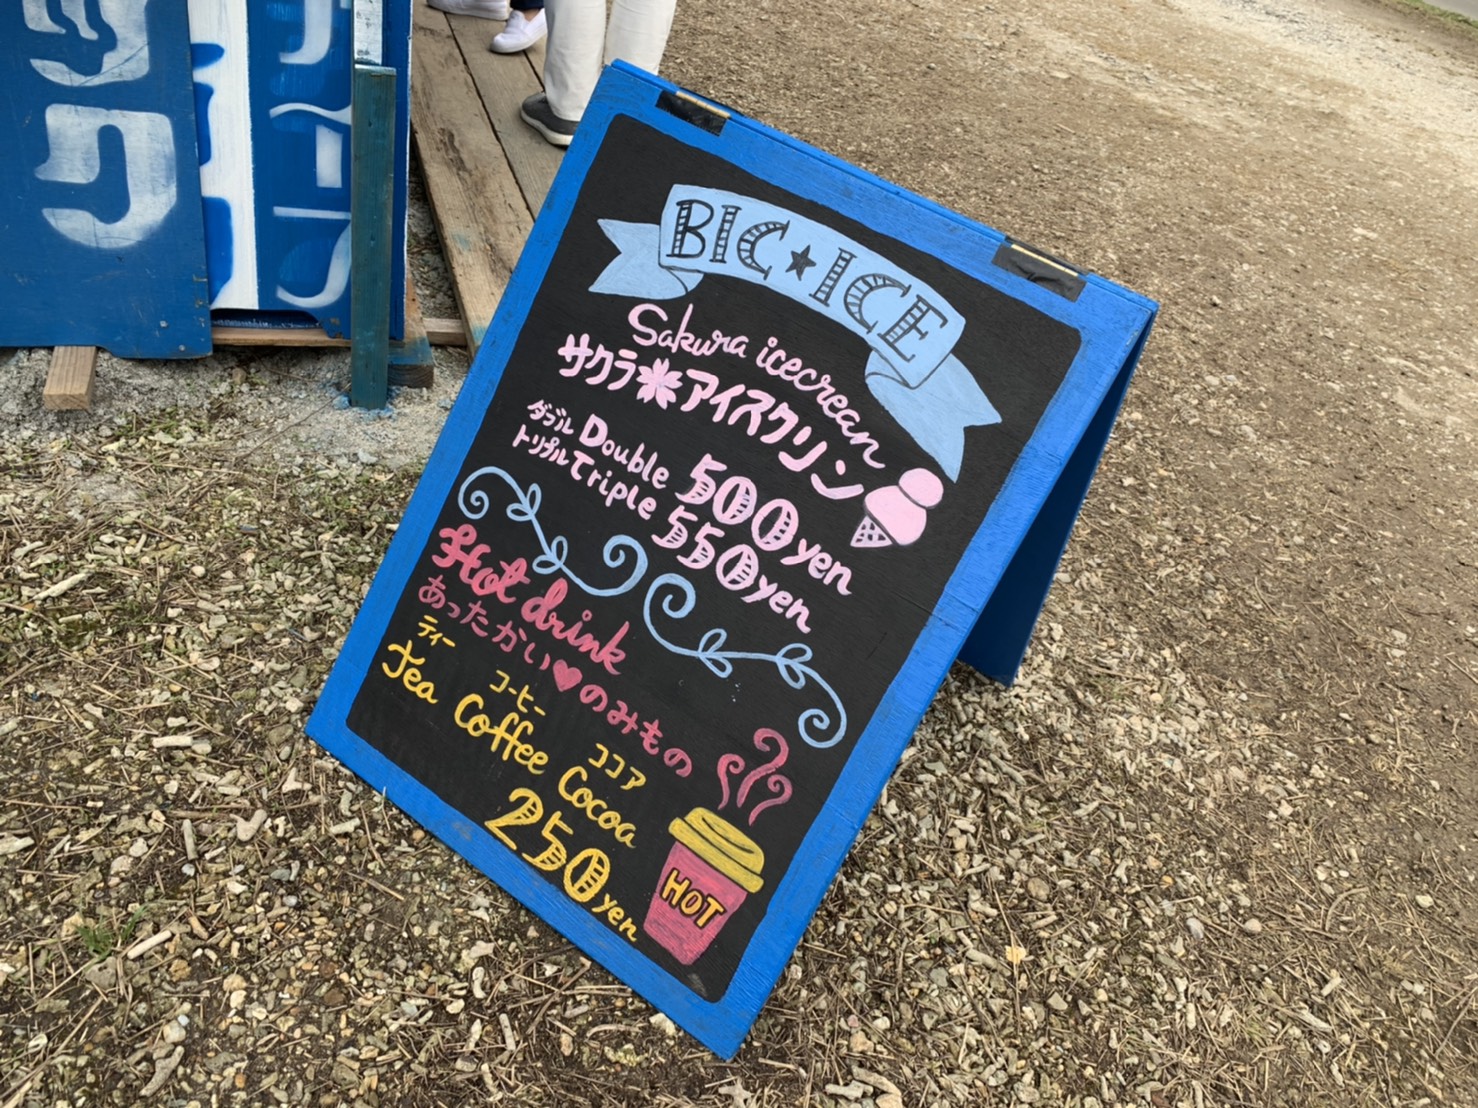 BIC★ICE
Sakura icecrean
サクラ🌸アイスクリン
ダブル Double 500yen
トリプル Triple 550yen
Hot drink
あったかい♥のみもの
ティー コーヒー ココア
Tea Coffee Cocoa
250yen
HOT